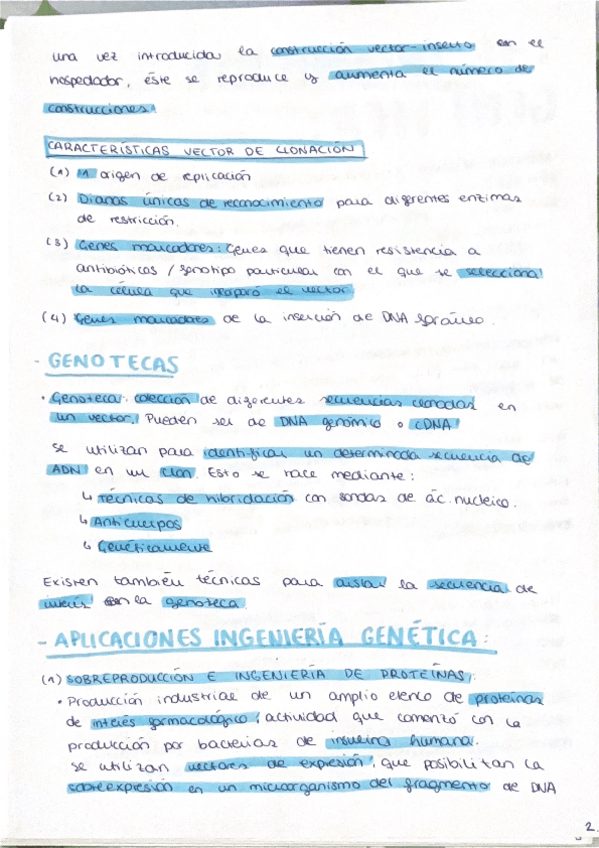 una vez introducida la construcción vector-inserto en el
hospedador, éste se reproduce y aumenta el número de
construcciones.
CARACTERÍSTICAS VECTOR DE CLONACIÓN
(1) 1 origen de replicación
(2) Dianas únicas de reconocimiento para diferentes enzimas
de restricción.
(3) Genes marcadores: Genes que tienen resistencia a
antibióticos / genotipo particular con el que se selecciona
la célula que incorporó el vector
(4) Genes marcadores de la inserción de DNA foráneo.
- GENOTECAS
· Genoteca: colección de diferentes secuencias clonadas en
un vector. Pueden ser de DNA genómico o cDNA
Se utilizan para identificar un determinada secuencia de
ADN en un clon. Esto se hace mediante:
↳ Técnicas de hibridación con sondas de ác. nucleico.
↳ Anticuerpos
↳ Genéticamente
Existen también técnicas para aislar la secuencia de
interés en la genoteca.
- APLICACIONES INGENIERÍA GENÉTICA:
(1) SOBREPRODUCCIÓN E INGENIERÍA DE PROTEÍNAS:
· Producción industrial de un amplio elenco de proteínas
de interés farmacológico, actividad que comenzó con la
producción por bacterias de insulina humana.
Se utilizan vectores de expresión, que posibilitan la
sobreexpresión en un microorganismo del fragmento de DNA
2